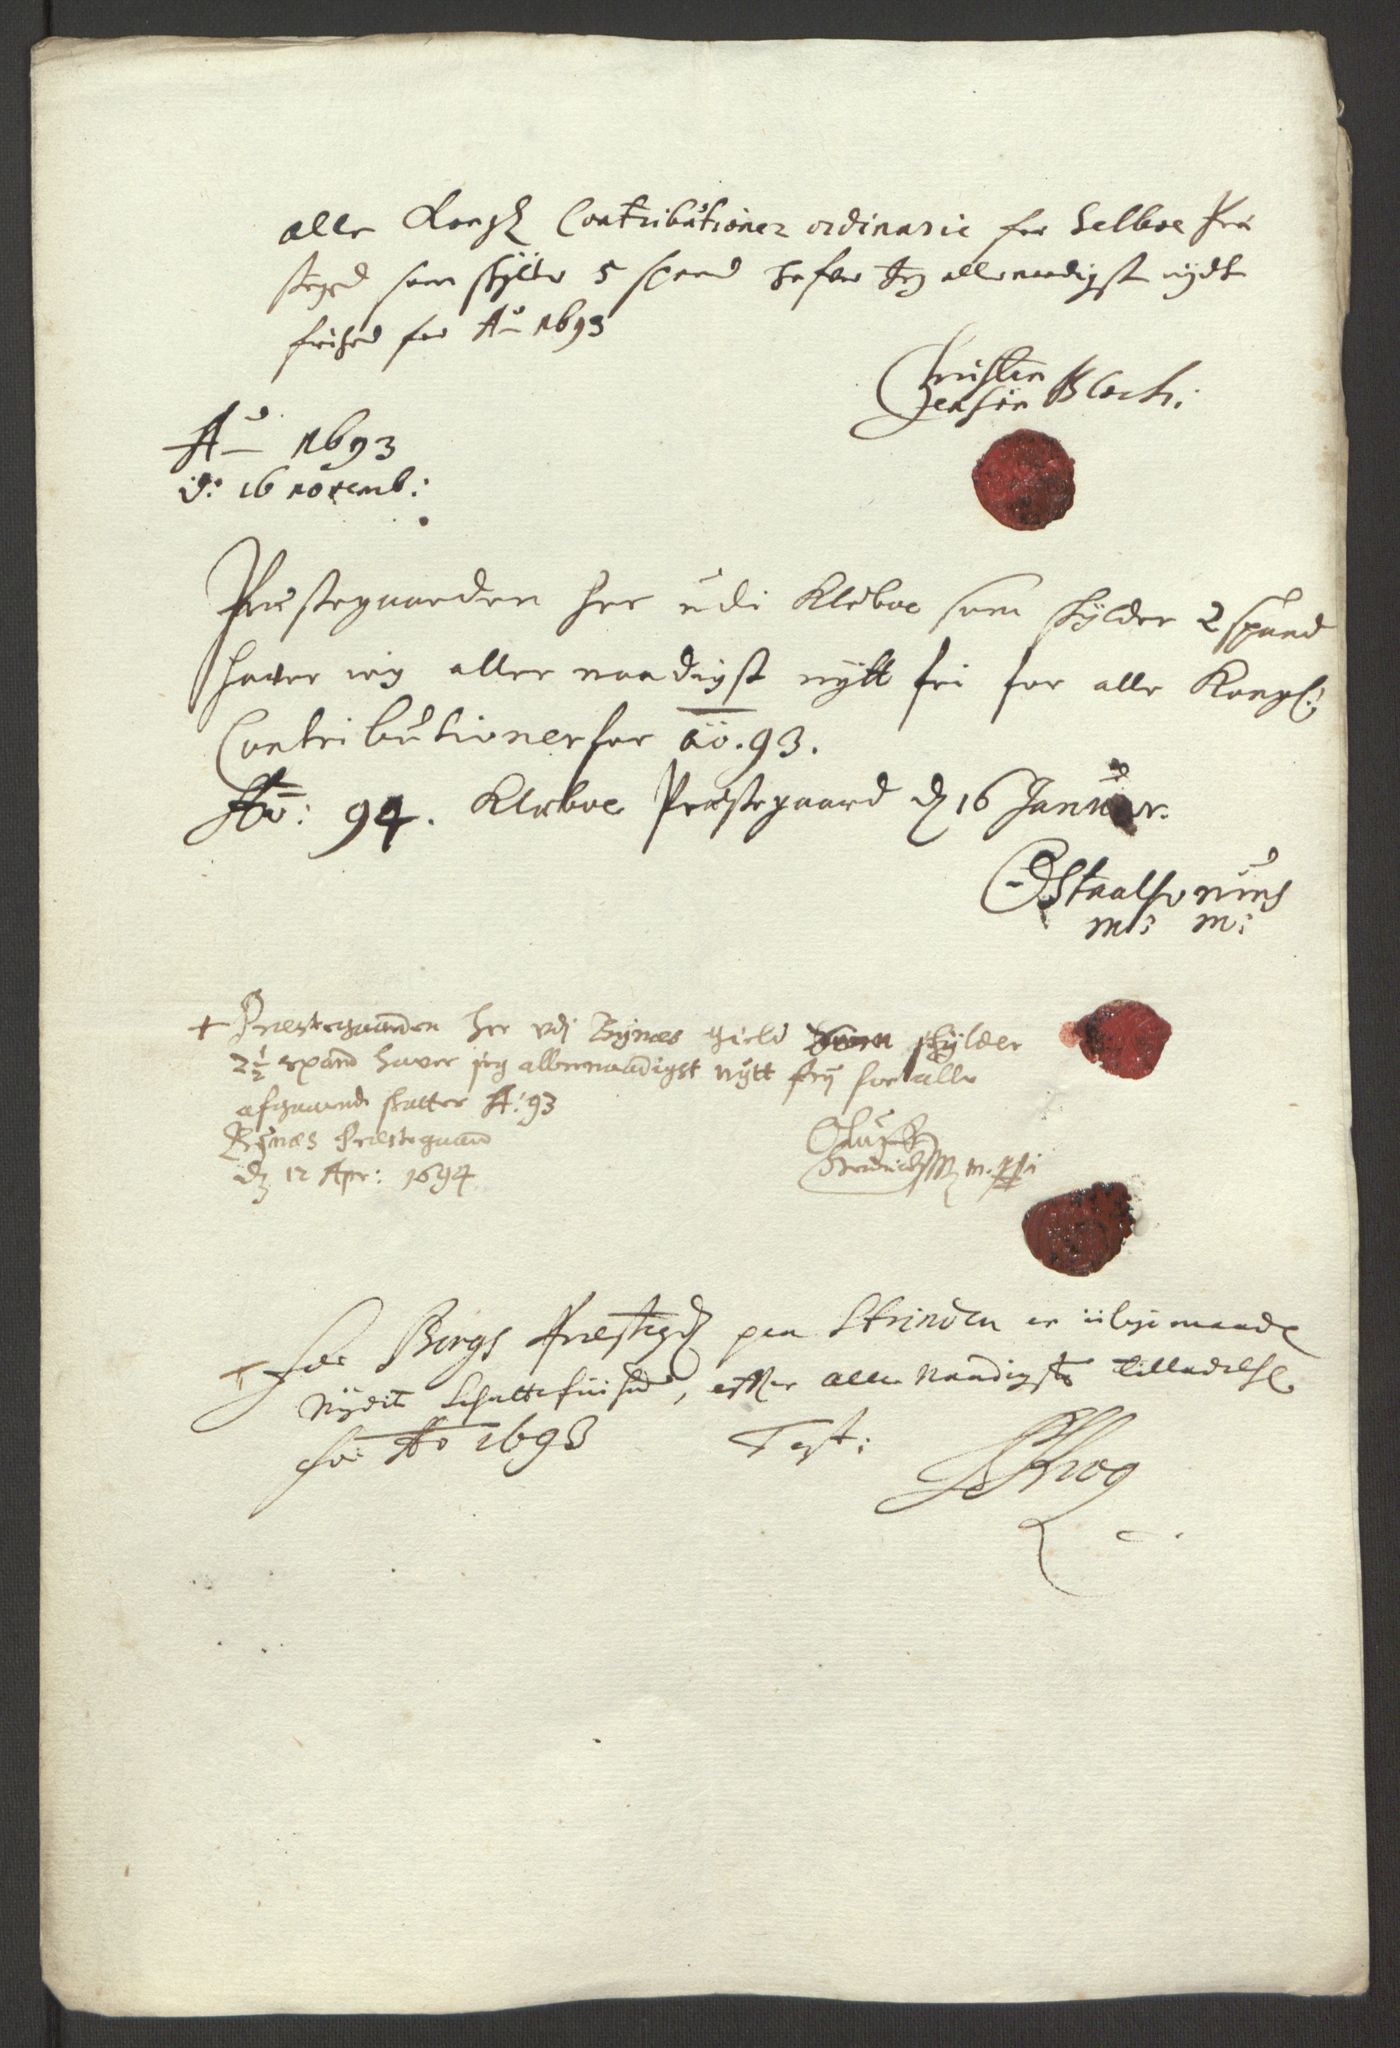 alle Kongl Contributioner ordinarie for Selboe Præ
stegrd som skylder 5 spand hafver Jeg allernaadigst nydt
frihed for Ao 1693
Christen
Jensøn Bloch:
Ao 1693
d: 16 novemb:
Præstegaarden her udi Klæboe som skylder 2 spand
haver ieg aller naadigst nytt fri for alle Kongl:
Contributioner for ao. 93.
Ao: 94. Klæboe Præstegaard d 16 Januar.
m: m:
+ Præstegaarden her udj Bynæs gield skylder
2½ spand haver jeg allernaadigst nytt frij for alle
afgaaende skatter A: 93
Bynæs Præstegaard
d 12 Apr: 1694
For Bergs Præstegrd paa Strinden er
Nydit Schattefriihed, efter aller Naadigste Tilladelse
for Ao 1693 Test:
Krog